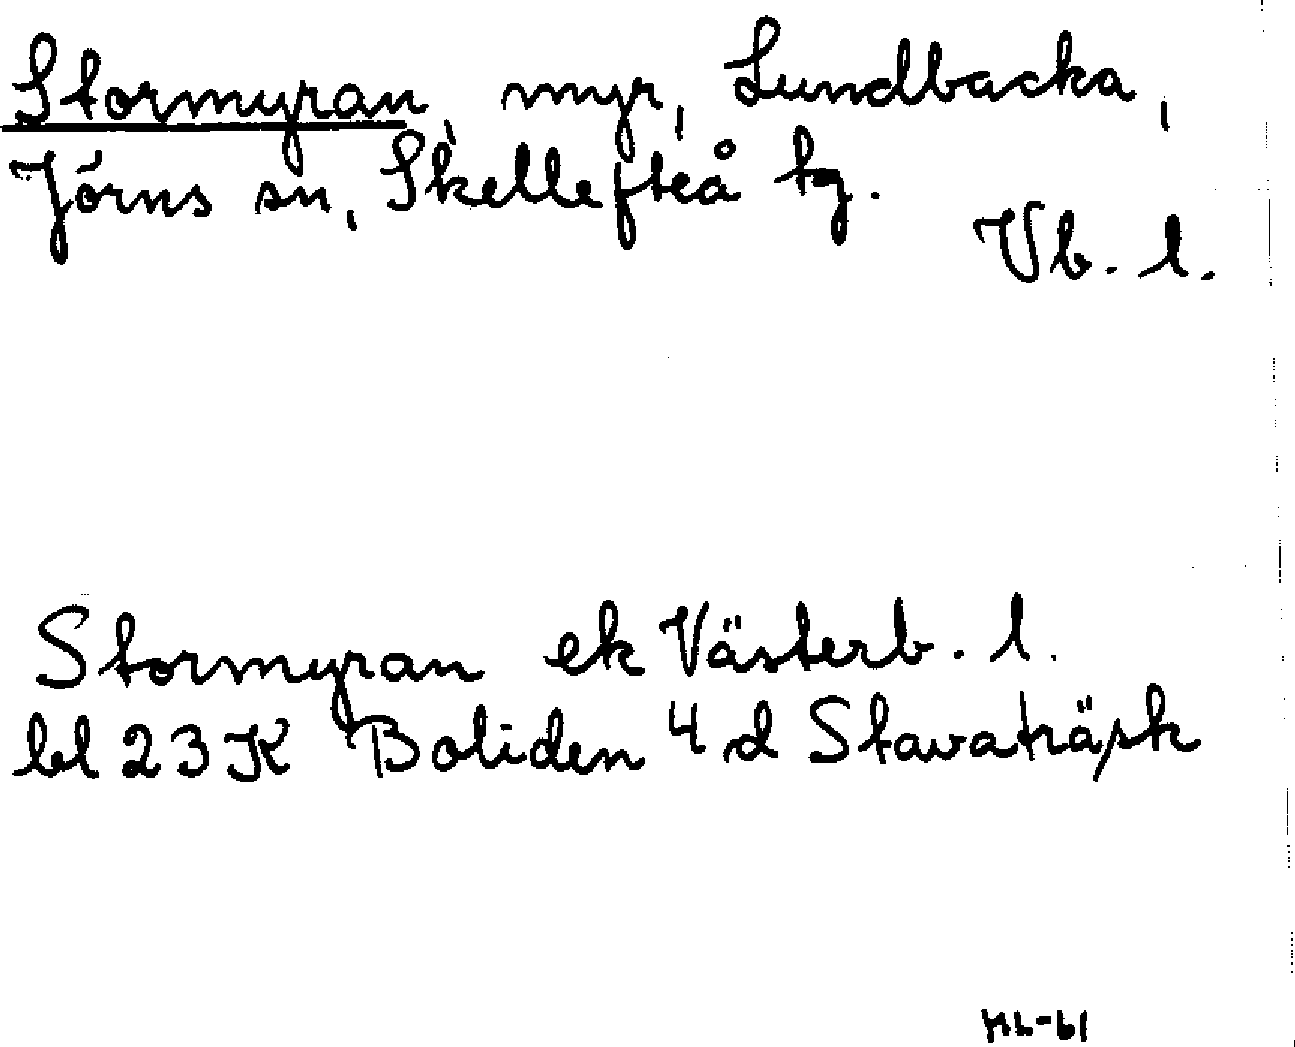 Stormyran, myr, Lundbacka,
Jörns sn, Skellefteå tg.
Vb. l.
Stormyran ek Västerb. l.
bl 23K Boliden 4 d Stavaträsk